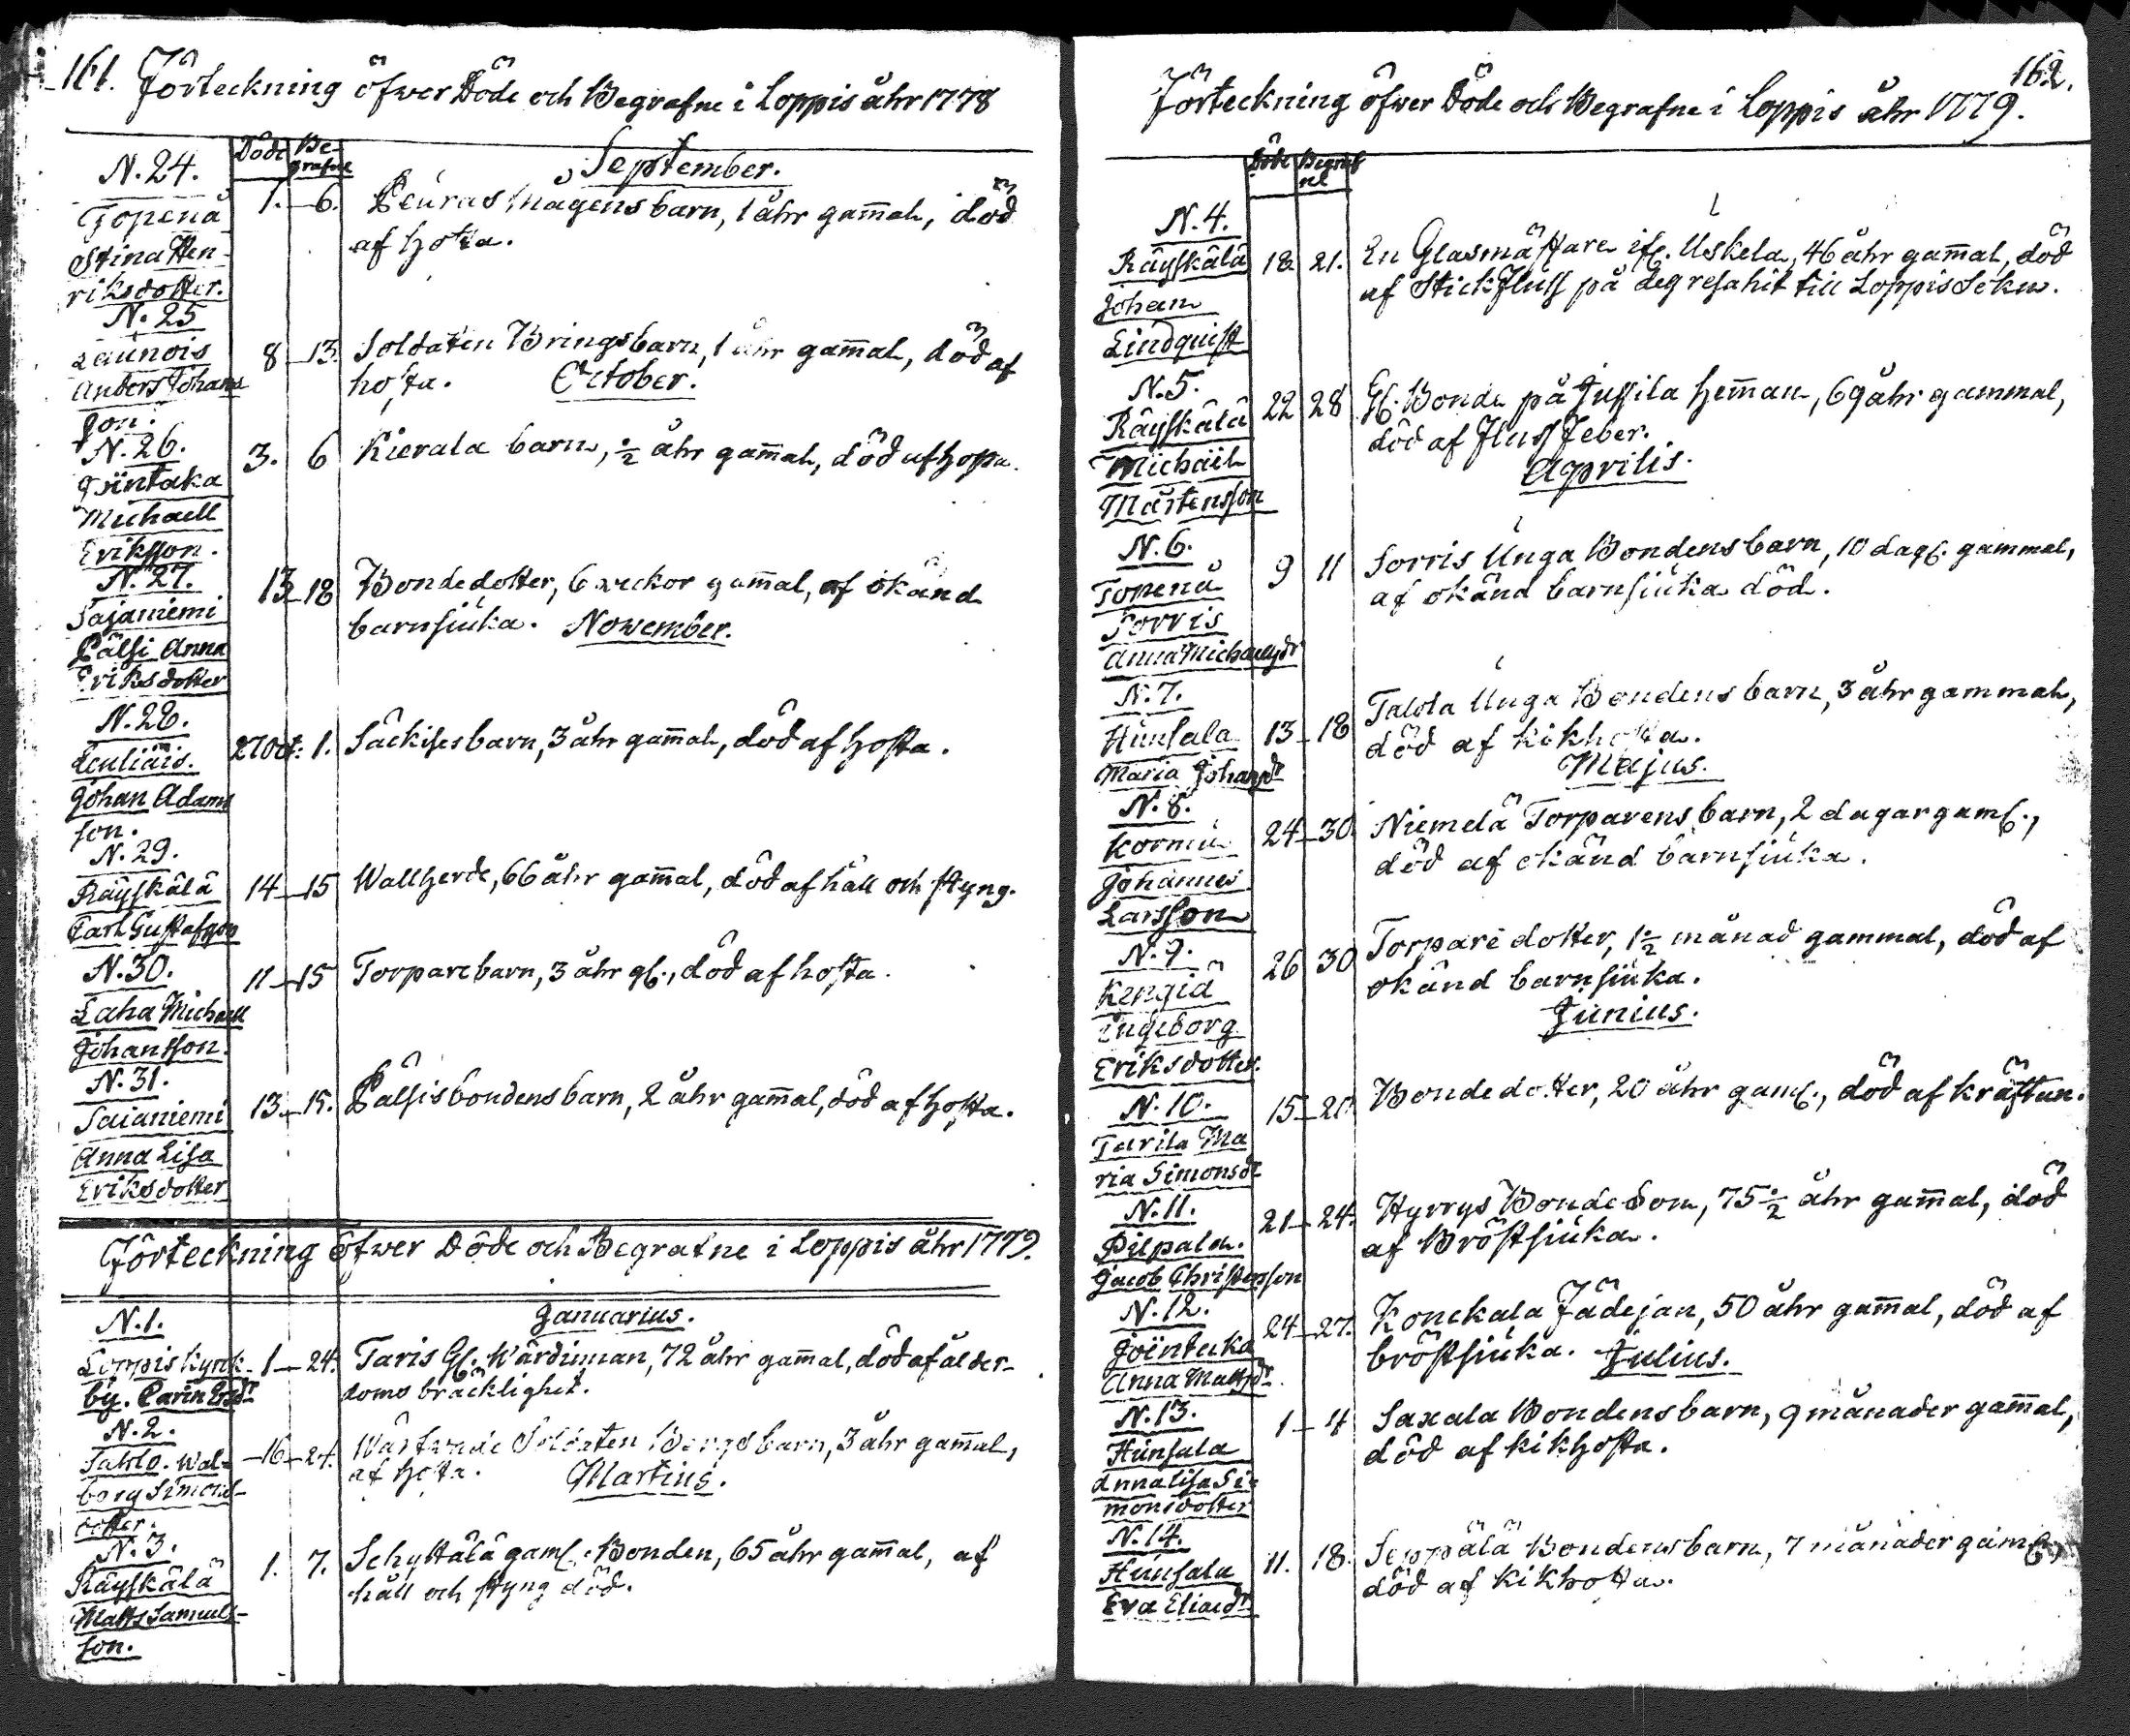 161. Förteckning öfwer Döde och Begrafne i Loppis åhr 1778
Döde Be-
grafne
September.
N. 24.
Topenå
Stina Hen-
riksdotter.
1. 6. Peuras Mågens barn, 1 åhr gam̄al, död
af hosta.
N. 25
Launois
Anders Johans
son.
8 13. Soldaten Brings barn, 1 åhr gam̄al, död af
hosta.
October.
N. 26.
Michaell
Eriksson.
3. 6 Kierala barn, ½ åhr gam̄al, död af hosta.
N. 27.
Sajaniemi
Pälsi Anna
Eriksdotter
13 18 Bondedotter, 6 weckor gam̄al, af okänd
barnsiuka.
Nowember.
N. 28.
Leuliais.
Johan Adams
son.
27 Oct: 1. Säckises barn, 3 åhr gam̄al, död af hosta.
N. 29.
Räyskälä
Carl Gustafson
14 15 Wallherde, 66 åhr gam̄al, död af håll och styng.
N. 30.
Laha Michaell
Johansson.
11 15 Torpare barn, 3 åhr gl., död af hosta.
N. 31.
Saianiemi
Anna Lisa
Eriksdotter
13. 15. Pälsis bondens barn, 2 åhr gam̄al, död af hosta.
Förteckning öfwer Döde och Begrafne i Loppis åhr 1779.
Januarius.
N. 1.
Loppis kyrk-
by. Carin Ersdr
1 24. Taris Gl. Wärdinnan, 72 åhr gam̄al, död af ålder-
doms bräcklighet.
N. 2.
Wal-
borg Simons-
dotter.
16 24. Wärfwade Soldaten Bergs barn, 3 åhr gam̄al,
af hosta.
Martius.
N. 3.
Räyskälä
Matts Samuels-
son.
1. 7. Schyttälä gaml. Bonden, 65 åhr gam̄al, af
håll och styng död.
162.
Förteckning öfwer Döde och Begrafne i Loppis åhr 1779.
Döde Begraf
ne
N. 4.
Räyskälä
Johan
Lindquist
18 21. En Glasmästare ifr. Uskela, 46 åhr gam̄al, död
af Stickfluss på deg resa hit till Loppis Sokn.
N. 5.
Räyskälä
Michaël
Mårtensson
22 28 Gl. Bonde på Jussila hem̄an, 69 åhr gammal,
död af Fluss Feber.
Aprilis.
N. 6.
Topenå
Sorris
Anna Michaelsdr
9 11 Sorris Unga Bondens barn, 10 dag. gammal,
af okänd barnsiuka död.
N. 7.
Hunsala
Maria Johansdr
13 18 Talola Unga Bondens barn, 3 åhr gammal,
död af kikhosta.
Majus.
N. 8.
Kormu
Johannes
Larsson
24 30. Niemelä Torparens barn, 2 dagar gaml.,
död af okänd barnsiuka.
N. 9.
Kengiä
Ingeborg
Eriksdotter.
26 30 Torpare dotter, 1½ månad gammal, död af
okänd barnsiuka.
Junius.
N. 10.
Ma
ria Simonsdr
15 20. Bondedotter, 20 åhr gaml., död af kräftan.
N. 11.
Pilpala.
Jacob Christersson
21 24. Hyrrys Bonde Son, 75½ åhr gam̄al, död
af Bröstsiuka.
N. 12.
Anna Mattsdr
24 27. Konckala Fädejan, 50 åhr gam̄al, död af
bröstsiuka.
Julius.
N. 13.
Hunsala
Anna Lisa Si-
monsdotter
1 4 Saxala Bondens barn, 9 månader gam̄al,
död af kikhosta.
N. 14.
Hunsala
Eva Eliaedr
11. 18. Seppälä Bondens barn, 7 månader gaml.,
död af kikhosta.